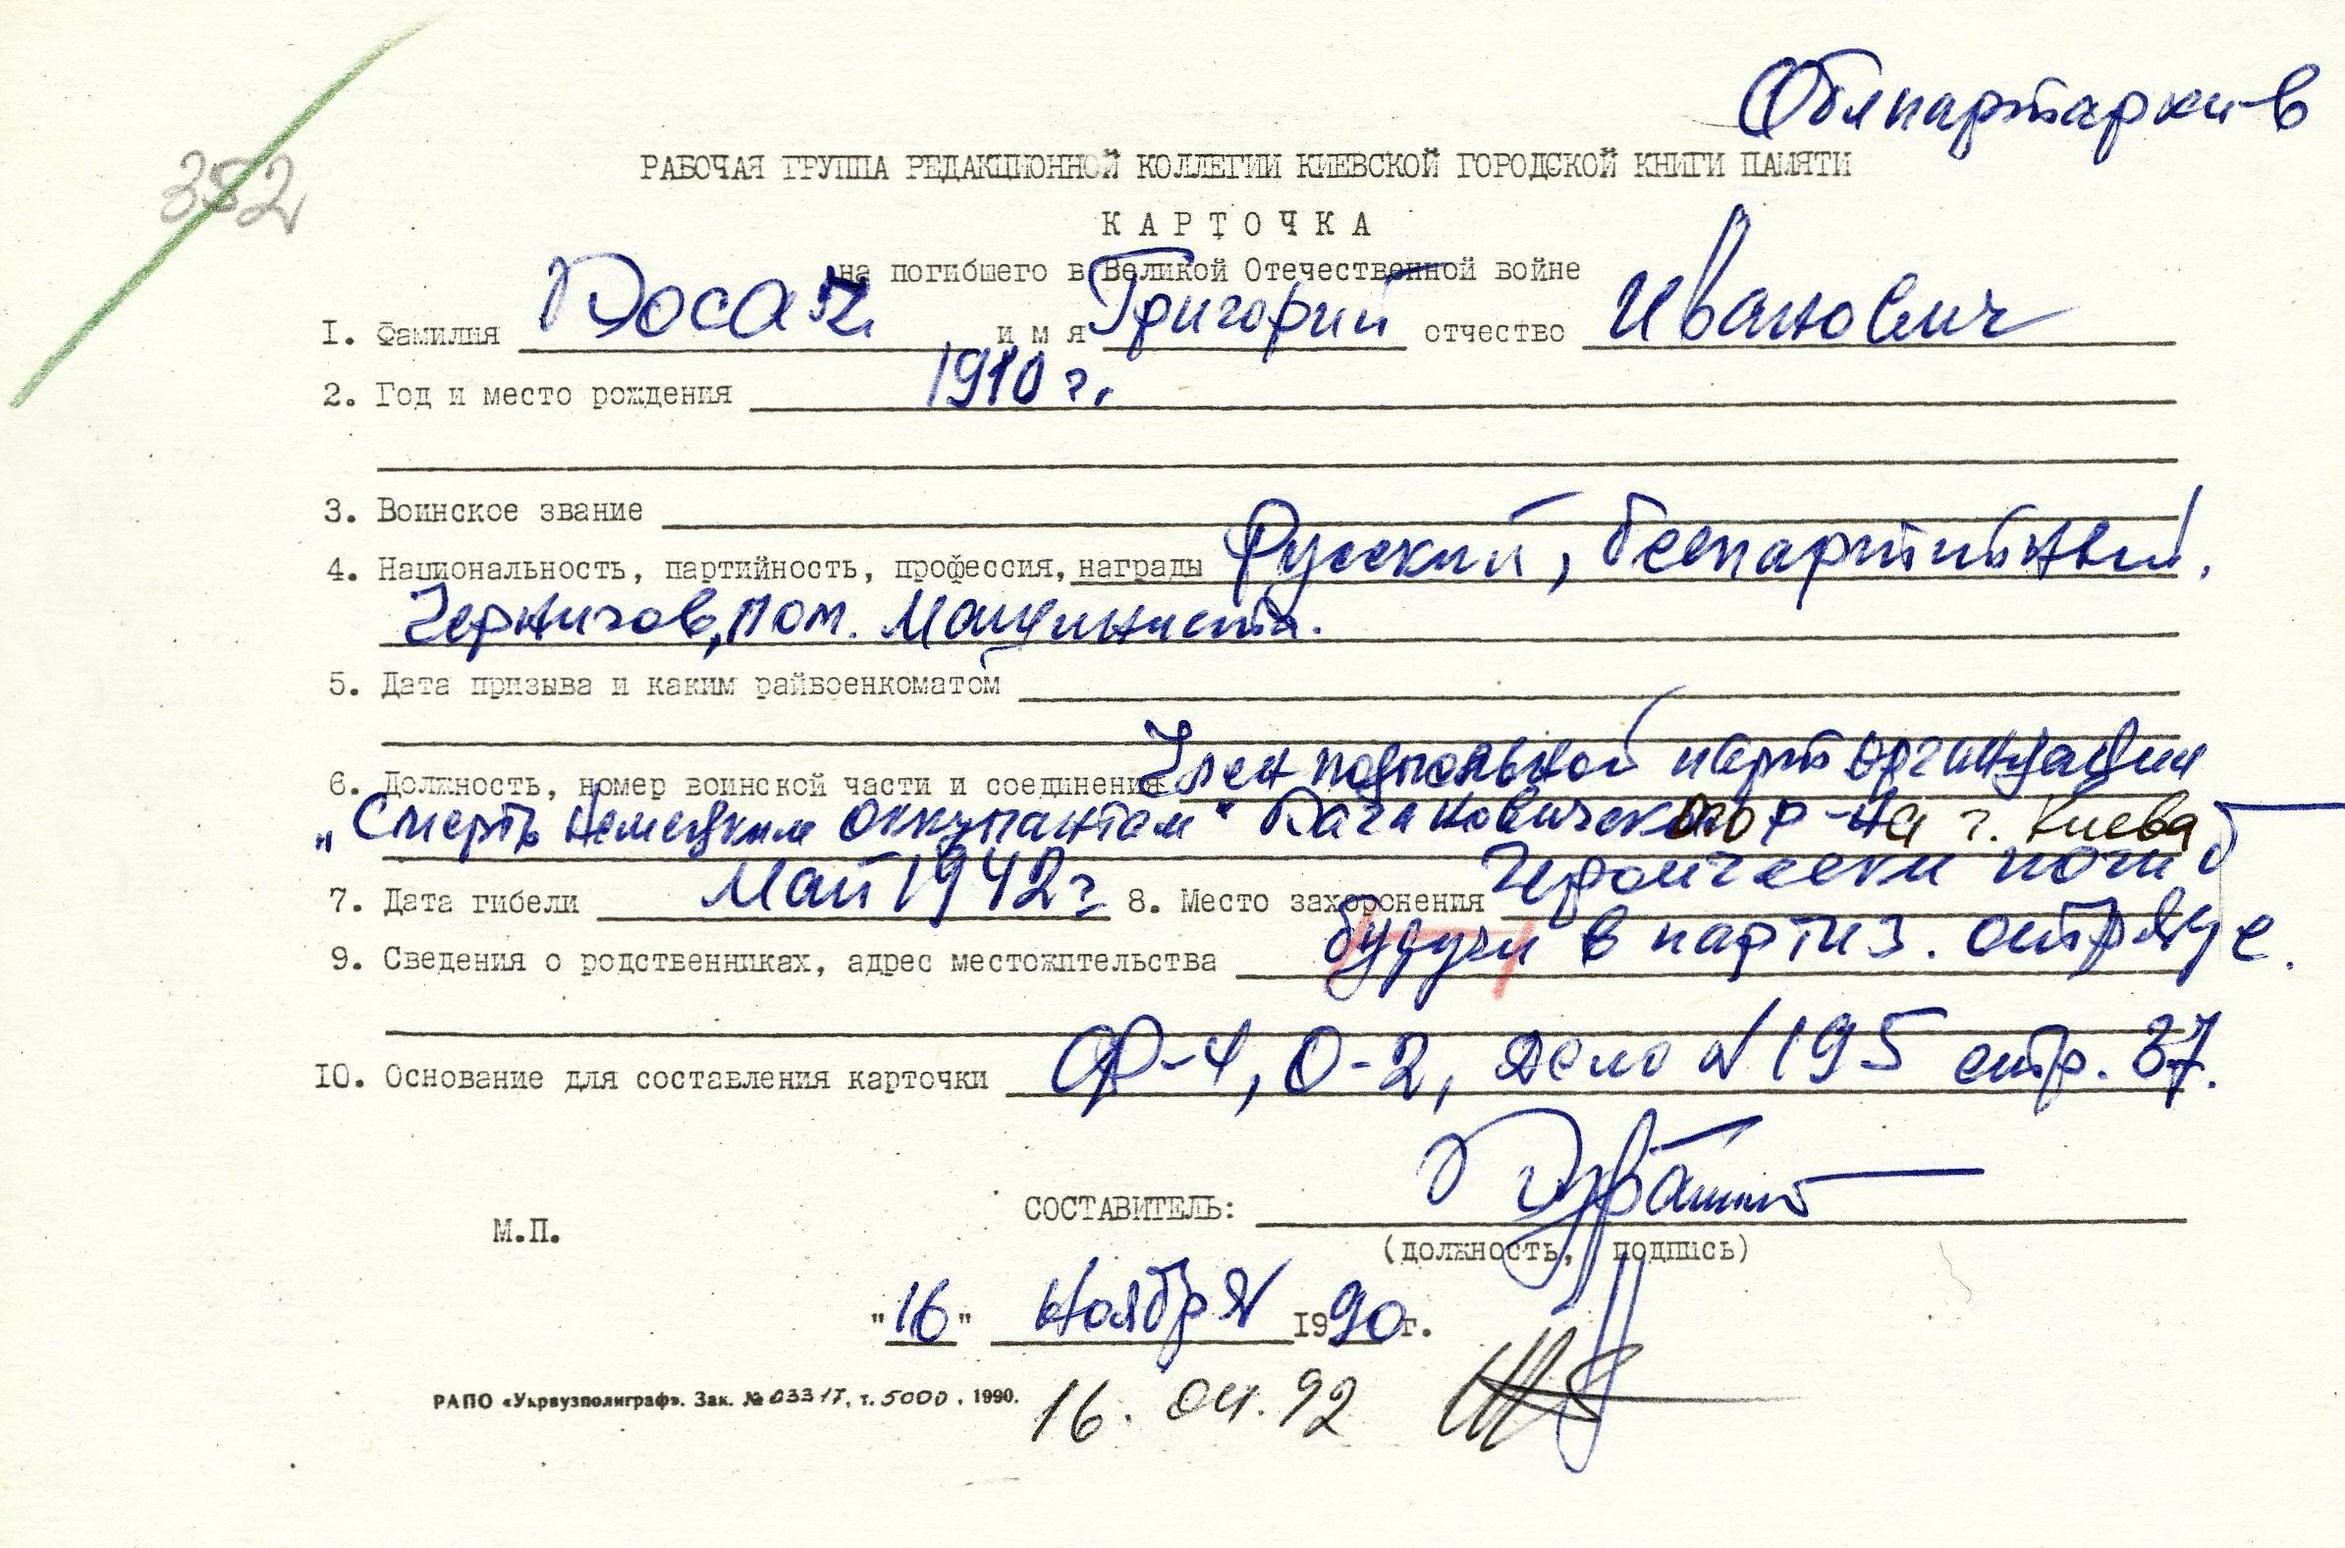 Облпартархив
352
РАБОЧАЯ ГРУППА РЕДАКЦИОННОЙ КОЛЛЕГИИ КИЕВСКОЙ ГОРОДСКОЙ КНИГИ ПАМЯТИ
КАРТОЧКА
на погибшего в Великой Отечественной войне
1. Фамилия имя Григорий отчество Иванович
2. Год и место рождения 1910 г.
3. Воинское звание
4. Национальность, партийность, профессия, награды Русский, беспартийный,
Чернигов, пом. Машиниста.
5. Дата призыва и каким райвоенкоматом
6. Должность, номер воинской части и соединения Член подпольной парторганизации
„Смерть немецким оккупантам" р-на г. Киева
7. Дата гибели Май 1942 г 8. Место захоронения Героически погиб
будучи в партиз. отряде.
9. Сведения о родственниках, адрес местожительства
10. Основание для составления карточки Ф-4, О-2, Дело N 195 стр. 37.
СОСТАВИТЕЛЬ:
М.П.
(должность, подпись)
"16" Ноября 1990г.
РАПО «Укрвузполиграф». Зак. № 03317, т. 5000, 1990.
16. 04. 92